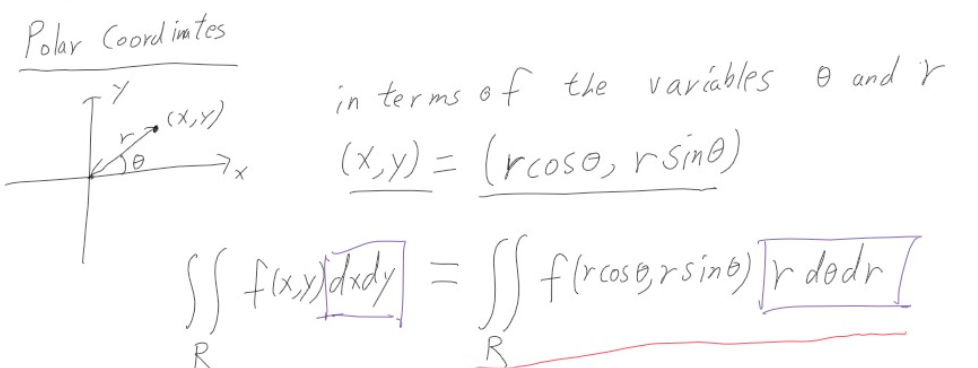 Polar Coordinates
y
(x,y)
r
θ
x
in terms of the variables θ and r
(x,y) = (rcosθ, r sinθ)
∬ f(x,y) dxdy = ∬ f(rcosθ, r sinθ) r dθdr
R R